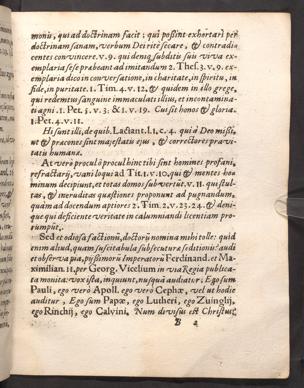 monis, qui ad doctrinam facit; qui possint exhortari per
doctrinam sanam, verbum Dei rite secare, & contradi-
centes convincere. v. 9. qui deniq; subditis suis viva ex-
emplaria sese præbeant ad imitandum 2. Thes. 3. v. 9. ex-
emplaria dico in conversatione, in charitate, in spiritu, in
fide, in puritate. 1. Tim. 4. v. 12. & quidem in ello grege,
qui redemtus sanguine immaculati illius, et incontamina-
ti agni. 1. Pet. 5. v. 3; & 1. v. 19. Cui sit honos & gloria.
1. Pet. 4. v. 11.
Hi sunt illi, de quib. Lactant. l. 1. c. 4. qui à Deo missi,
ut & præcones sint majestatis ejus, & correctores pravi-
tatis humanæ.
At verò procul ô procul hinc tibi sint homines profani,
refractarij, vaniloqui ad Tit. 1. v. 10, qui & mentes ho-
minum decipiunt, et totas domos subvertūt. v. 11. qui stul-
tas, & ineruditas quæstiones proponunt ad pugnandum,
quàm ad docendum aptiores 2. Tim. 2. v. 23. 24. & deni-
que qui deficiente veritate in calumniandi licentiam pro-
rumpūt.
Sed et odiosa factionū, doctorū nomina mihi tolle: quid
enim aliud, quam suscitabula, subscuturæ seditionis? audi
et observa quæ, pijssimorū Imperatorū Ferdinand. et Ma-
ximilian. II, per Georg. Vicelium in via Regia publica-
ta monita: vox ista, inquiunt, nusquā audiatur; Ego sum
Pauli, ego verò Apoll. ego verò Cephæ, vel ut hodie
auditur, Ego sum Papæ, ego Lutheri, ego Zuinglij,
ego Rinchij, ego Calvini, Num divisus est Christus,
B